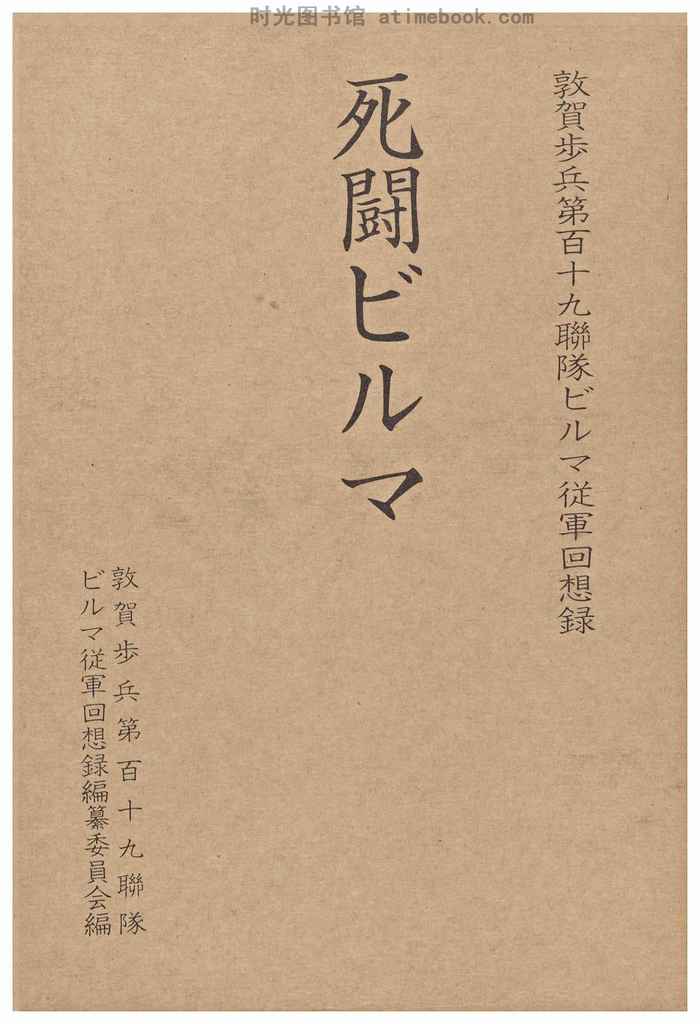 时光图书馆 atimebook.com
敦賀歩兵第百十九聯隊ビルマ従軍回想録
死闘ビルマ
敦賀歩兵第百十九聯隊
ビルマ従軍回想録編纂委員会編